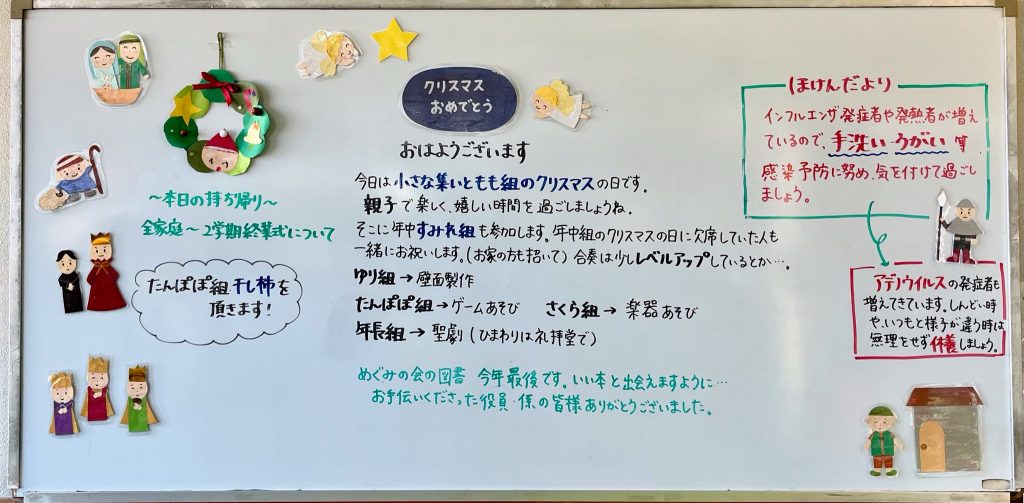 クリスマス
おめでとう
おはようございます
今日は小さな集いともも組のクリスマスの日です。
親子で楽しく、嬉しい時間を過ごしましょうね。
そこに年中すみれ組も参加します。年中組のクリスマスの日に欠席していた人も
一緒にお祝いします。(お家の方も招いて)合奏は少しレベルアップしているとか…。
ゆり組→壁面製作
たんぽぽ組→ゲームあそび さくら組→楽器あそび
年長組→聖劇(ひまわりは礼拝堂で)
めぐみの会の図書 今年最後です。いい本と出会えますように…
お手伝いくださった役員・係の皆様ありがとうございました。
〜本日の持ち帰り〜
全家庭〜2学期終業式について
たんぽぽ組干し柿を
頂きます!
ほけんだより
インフルエンザ発症者や発熱者が増え
ているので、手洗い・うがい等
感染予防に努め、気を付けて過ごし
ましょう。
アデノウイルスの発症者も
増えてきています。しんどい時
や、いつもと様子が違う時は
無理をせず休養しましょう。